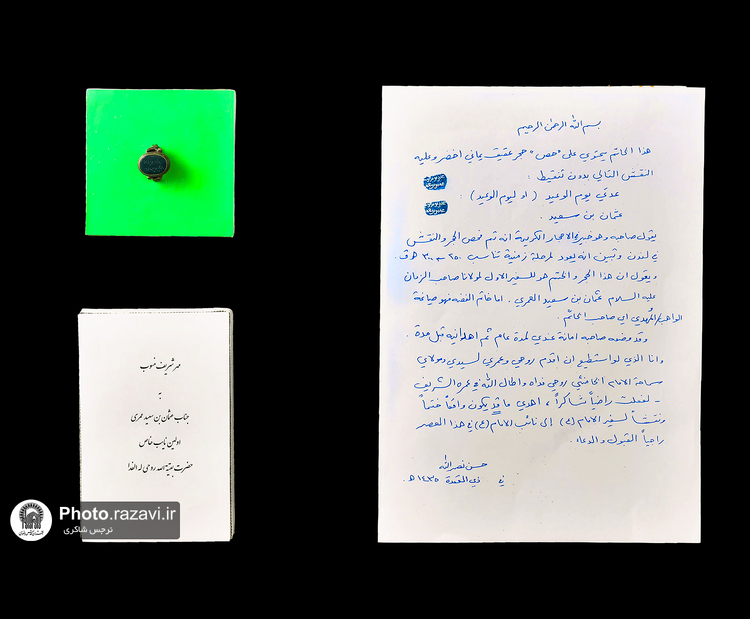 بسم الله الرحمن الرحيم
هذا الخاتم يحتوي على "فص" حجر عقيق يماني اخضر وعليه
النقش التالي بدون تنقيط :
عدتي يوم الوعيد ( او ليوم الوعيد ) :
عثمان بن سعيد .
يقول صاحبه وهو خبير في الاحجار الكريمة انه تم فحص الحجر والنقش
في لندن وتبين انه يعود لمرحلة زمنية تناسب ٢٥٠ - ٣٠٠ هـ ق .
ويقول ان هذا الحجر والختم هو للسفير الاول لمولانا صاحب الزمان
عليه السلام عثمان بن سعيد العمري . اما خاتم الفضة فهو صياغة
الواهب / المُهدي اي صاحب الخاتم .
وقد وضعه صاحبه امانة عندي لمدة عام ثم اهداني إياه قبل مدة .
وانا الذي لو استطيع ان اقدم روحي وعمري لسيدي ومولاي
سماحة الامام الخامنئي روحي فداه واطال الله في عمره الشريف
- لفعلت راضياً شاكراً ، اهدي ما قد يكون واقعاً ختماً
ونقشاً لسفير الامام (ع) إلى نائب الامام (ع) في هذا العصر
راجياً القبول والدعاء .
حسن نصرالله
في ذي القعدة ١٤٣٥ هـ .
مهر شریف منسوب
به
جناب عثمان بن سعید عمری
اولین نایب خاص
حضرت بقیة الله روحی له الفدا
Photo.razavi.ir
نرجس شاکری